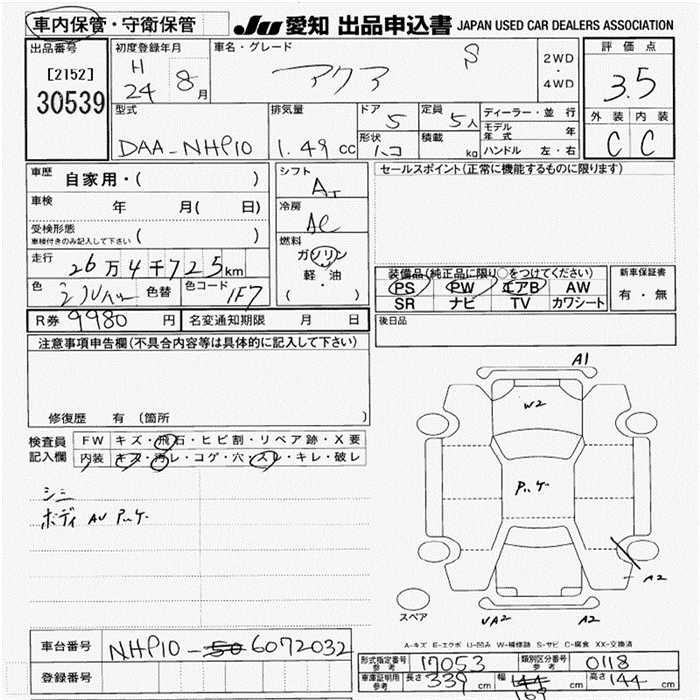 車内保管・守衛保管
JU 愛知 出品申込書 JAPAN USED CAR DEALERS ASSOCIATION
出品番号
[2152]
30539
初度登録年月
H
24 8月
車名・グレード
アクア S
2WD
・
4WD
評価点
3.5
外装 内装
C C
型式
DAA-NHP10
排気量
1.49 cc
ドア
5
形状
ハコ
定員
5人
積載
kg
ディーラー・並行
モデル年式 年
ハンドル 左・右
車歴 自家用・( )
車検 年 月( 日)
受検形態
車検付きのみ記入して下さい ( )
走行 26万4千725km
色 シルバー 色替 色コード 1F7
R券 9980 円 名変通知期限 月 日
シフト
AT
冷房
AC
燃料
ガソリン
軽・油
( )
セールスポイント(正常に機能するものに限ります)
装備品(純正品に限り○をつけてください)
PS PW エアB AW
SR ナビ TV カワシート
新車保証書
有・無
後日品
注意事項申告欄(不具合内容等は具体的に記入して下さい)
修復歴 有 (箇所 )
検査員
記入欄
FW キズ・飛石・ヒビ割・リペア跡・X要
内装 キズ・汚レ・コゲ・穴・スレ・キレ・破レ
シミ
ボディ AU P.ケ
A1
W2
P.ケ
A2
UA2 A2
スペア
A-キズ E-エクボ U-凹み W-補修跡 S-サビ C-腐食 XX-交換済
車台番号 NHP10-50 6072032
登録番号
形式指定番号 参考 17053 類別区分番号 参考 0118
車庫証明用 参考 長さ 339 cm 幅 144 169 cm 高さ 144 cm